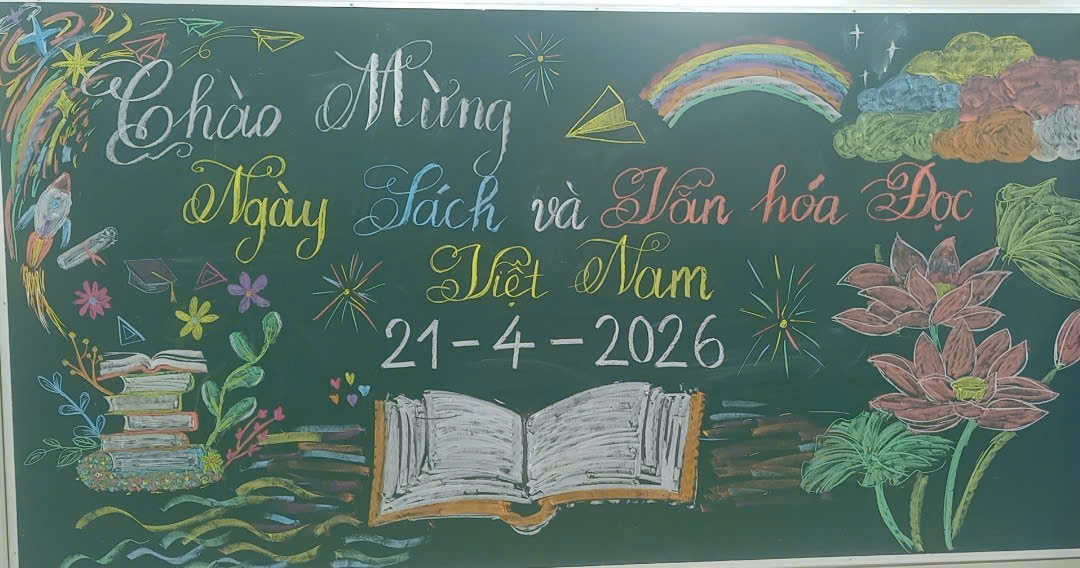 Chào Mừng
Ngày Sách và Văn hóa Đọc
Việt Nam
21-4-2026